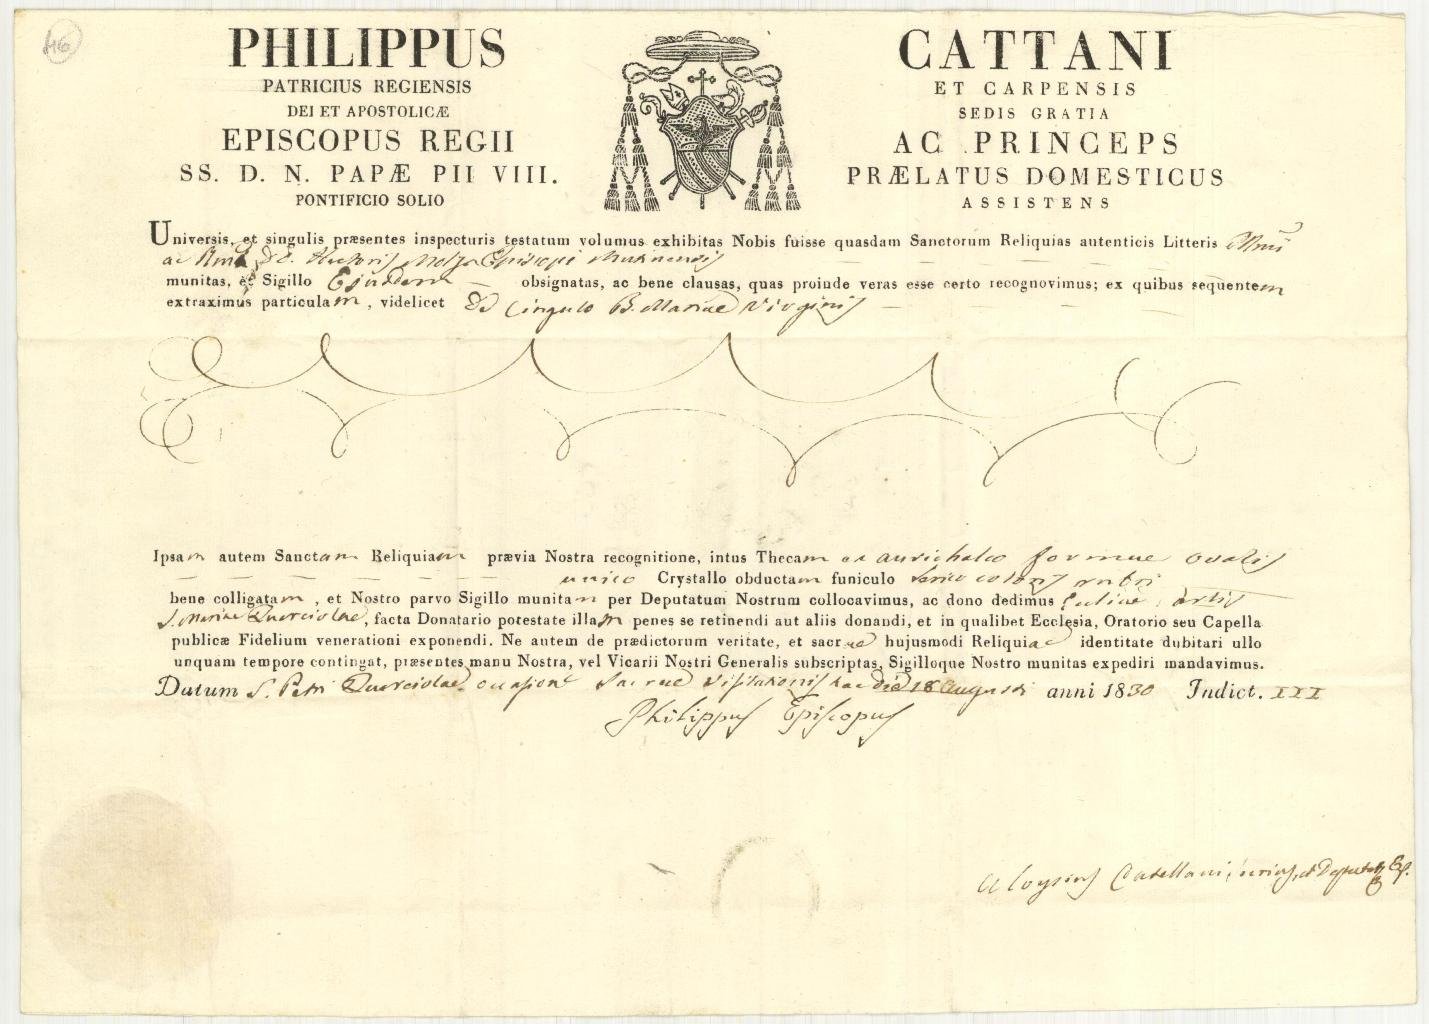 46
PHILIPPUS CATTANI
PATRICIUS REGIENSIS ET CARPENSIS
DEI ET APOSTOLICÆ SEDIS GRATIA
EPISCOPUS REGII AC PRINCEPS
SS. D. N. PAPÆ PII VIII. PRÆLATUS DOMESTICUS
PONTIFICIO SOLIO ASSISTENS
Universis, et singulis præsentes inspecturis testatum volumus exhibitas Nobis fuisse quasdam Sanctorum Reliquias autenticis Litteris Illmi
ac Rmi Episcopi Mutinensis
munitas, et Sigillo Ejusdem obsignatas, ac bene clausas, quas proinde veras esse certo recognovimus; ex quibus sequentem
extraximus particulam, videlicet De Cingulo B. Mariae Virginis
Ipsam autem Sanctam Reliquiam prævia Nostra recognitione, intus Thecam ex aurichalco formae ovalis
unico Crystallo obductam funiculo serico coloris rubri
bene colligatam, et Nostro parvo Sigillo munitam per Deputatum Nostrum collocavimus, ac dono dedimus Eccliae
S. Mariae Querciolae, facta Donatario potestate illam penes se retinendi aut aliis donandi, et in qualibet Ecclesia, Oratorio seu Capella
publicæ Fidelium venerationi exponendi. Ne autem de prædictorum veritate, et sacrae hujusmodi Reliquiae identitate dubitari ullo
unquam tempore contingat, præsentes manu Nostra, vel Vicarii Nostri Generalis subscriptas, Sigilloque Nostro munitas expediri mandavimus.
Datum S. Petri Querciolae occasione Sacrae Visitationis hac die 18 Augusti anni 1830 Indict. III
Philippus Episcopus
Aloysius Castellani